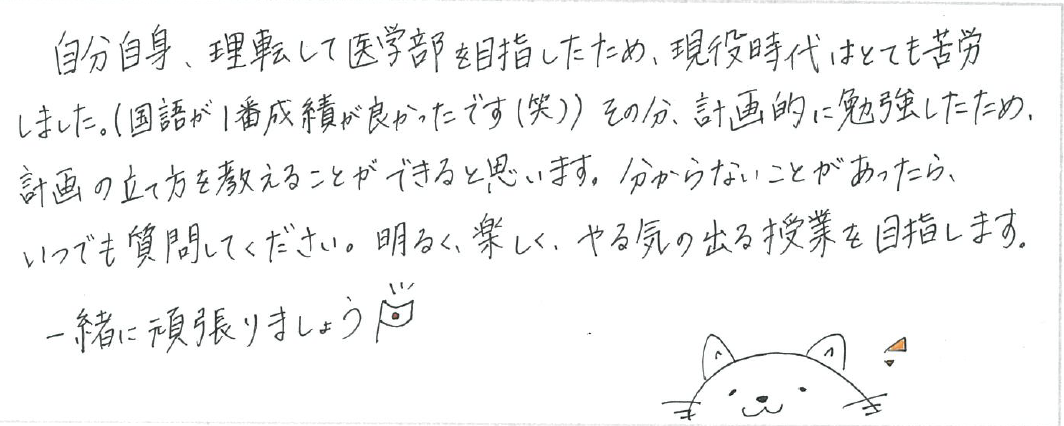 自分自身、理転して医学部を目指したため、現役時代はとても苦労
しました。(国語が1番成績が良かったです(笑)) その分、計画的に勉強したため、
計画の立て方を教えることができると思います。分からないことがあったら、
いつでも質問してください。明るく、楽しく、やる気の出る授業を目指します。
一緒に頑張りましょう